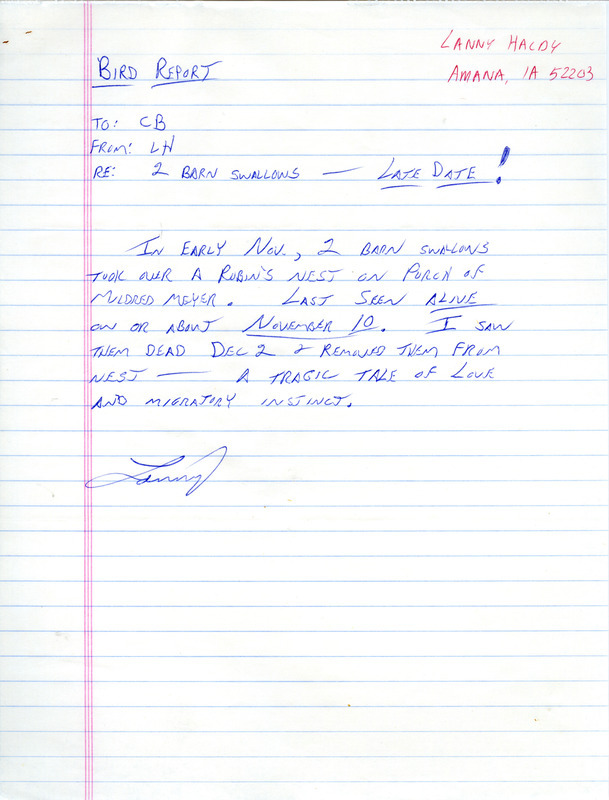 LANNY HALDY
AMANA, IA 52203
BIRD REPORT
TO: CB
FROM: LH
RE: 2 BARN SWALLOWS — LATE DATE!
IN EARLY NOV., 2 BARN SWALLOWS
TOOK OVER A ROBIN'S NEST ON PORCH OF
MILDRED MEYER. LAST SEEN ALIVE
ON OR ABOUT NOVEMBER 10. I SAW
THEM DEAD DEC 2 & REMOVED THEM FROM
NEST — A TRAGIC TALE OF LOVE
AND MIGRATORY INSTINCT.
Lanny